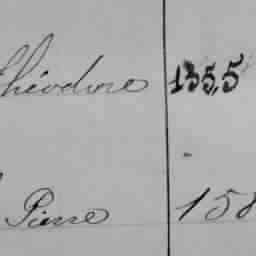 Théodore 135,5
Pierre 158